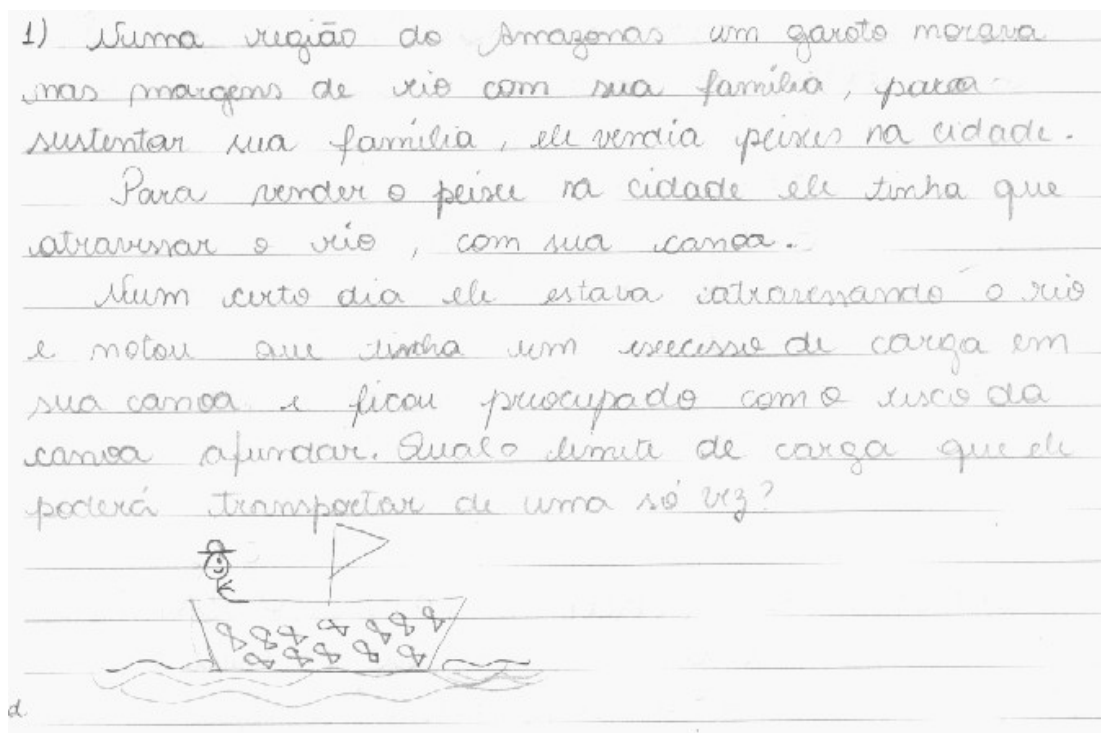 1) Numa região do Amazonas um garoto morava
nas margens de rio com sua família, para
sustentar sua família, ele vendia peixes na cidade.
Para vender o peixe na cidade ele tinha que
atravessar o rio, com sua canoa.
Num certo dia ele estava atravessando o rio
e notou que tinha um excesso de carga em
sua canoa e ficou preocupado com o risco da
canoa afundar. Qual o limite de carga que ele
poderá transportar de uma só vez?
d